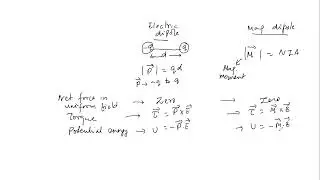 Electric dipole
Mag dipole
-q q
d
|P⃗| = qd
P⃗ → -q to q
|M⃗| = NIA
Mag. Moment
Net force in uniform field → Zero → Zero
Torque → τ⃗ = P⃗ × E⃗ → τ⃗ = M⃗ × B⃗
Potential energy → U = -P⃗.E⃗ → U = -M⃗.B⃗